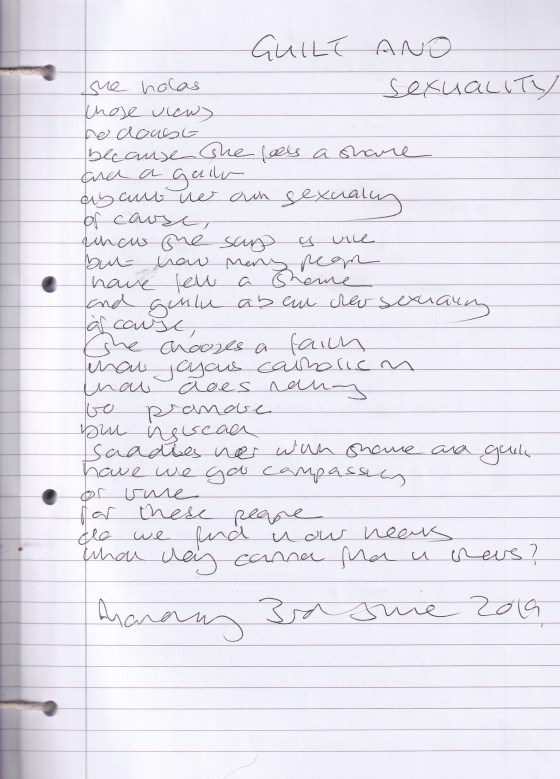 GUILT AND
SEXUALITY
she holds
those views
no doubt
because she feels a shame
and a guilt
about her own sexuality
of cause,
what she says is vile
but how many people
have felt a shame
and guilt about their sexuality
of cause,
she chooses a faith
that joyous catholicism
that does nothing
to promote
but instead
saddles her with shame and guilt
have we got compassion
or time
for these people
do we find in our hearts
what they cannot find in theirs?
3rd June 2019